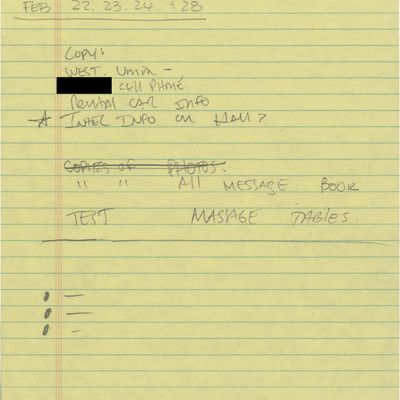 FEB 22, 23, 24, & 28
COPY:
WEST. Union -
CELL PHONE
Rental CAR INFO
☆ INTEL INFO ON HALL?
COPIES OF PHOTOS.
" " All MESSAGE BOOK
TEST MASSAGE TABLES.